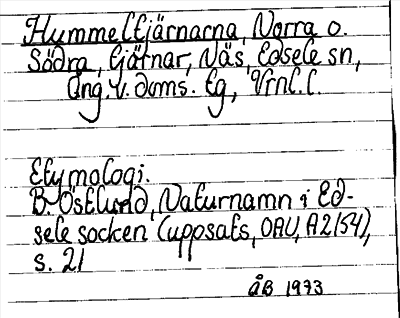 Hummeltjärnarna, Norra o.
Södra, tjärnar, Näs, Edsele sn,
Ång. v. doms. tg, Vrnl. l.
Etymologi.
B. Östlund, Naturnamn i Ed-
sele socken (uppsats, OAU, A2154),
s. 21
ÅB 1973